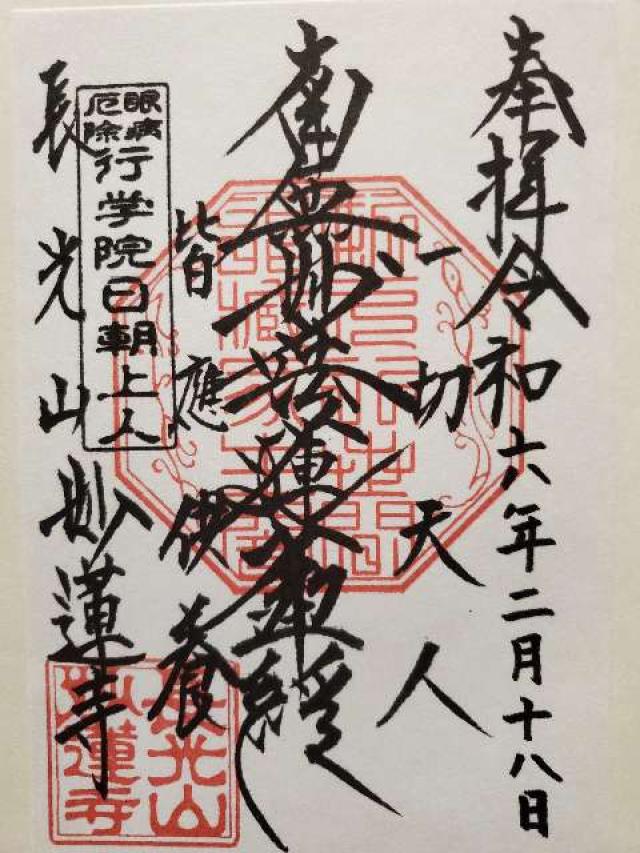 奉拝 令和六年二月十八日
一切天人
南無妙法蓮華経
皆應供養
眼病
厄除
行学院日朝上人
長光山妙蓮寺
長光山
妙蓮寺